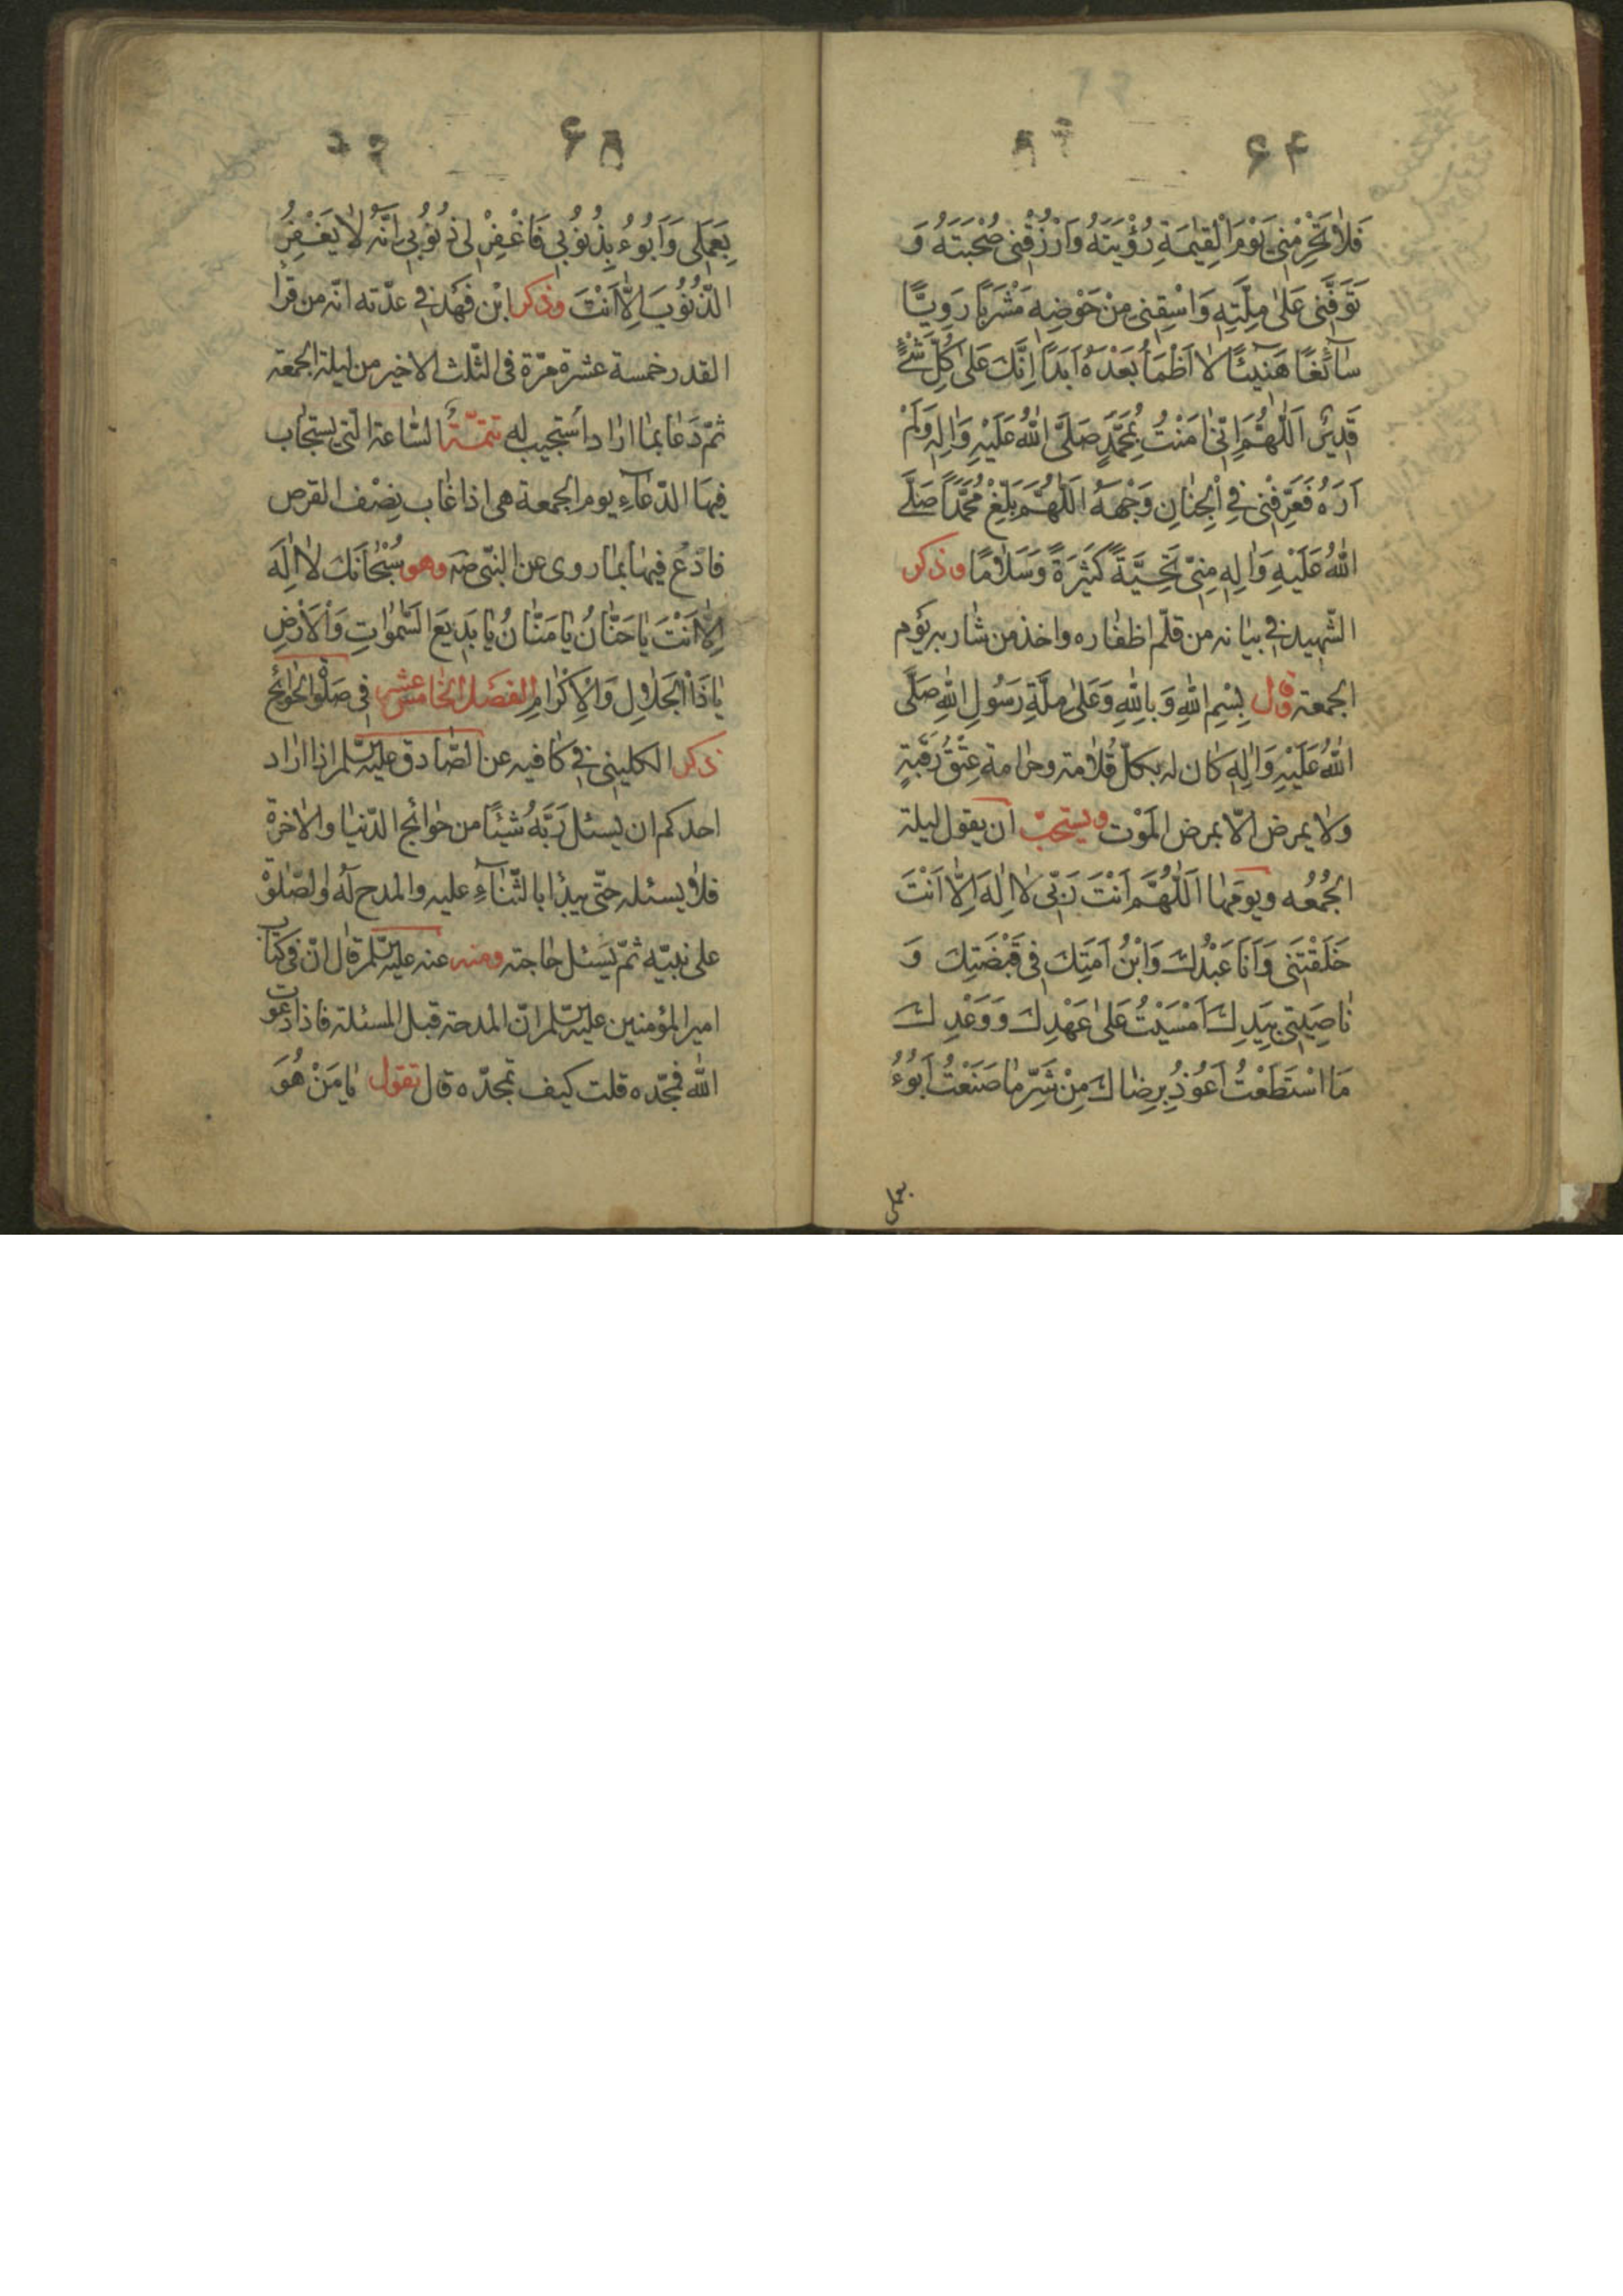 ۶۴
فَلَا تَحْرِمْنِي يَوْمَ الْقِيٰمَةِ رُؤْيَتَهُ وَارْزُقْنِي صُحْبَتَهُ وَ
تَوَفَّنِي عَلىٰ مِلَّتِهِ وَاسْقِنِي مِنْ حَوْضِهِ مَشْرَبًا رَوِيًّا
سَآئِغًا هَنِيئًا لَا اَظْمَاُ بَعْدَهُ اَبَدًا اِنَّكَ عَلىٰ كُلِّ شَيْءٍ
قَدِيرٌ اَللّٰهُمَّ اِنِّي اٰمَنْتُ بِمُحَمَّدٍ صَلَّى اللّٰهُ عَلَيْهِ وَاٰلِهِ وَلَمْ
اَرَهُ فَعَرِّفْنِي فِي الْجِنَانِ وَجْهَهُ اَللّٰهُمَّ بَلِّغْ مُحَمَّدًا صَلَّى
اللّٰهُ عَلَيْهِ وَاٰلِهِ مِنِّي تَحِيَّةً كَثِيرَةً وَسَلَامًا وذكر
الشّهيد في بيانه من قلّم اظفاره واخذ من شاربه يوم
الجمعة وقال بِسْمِ اللّٰهِ وَبِاللّٰهِ وَعَلىٰ مِلَّةِ رَسُولِ اللّٰهِ صَلَّى
اللّٰهُ عَلَيْهِ وَاٰلِهِ كان له بكلّ قُلامة وجزازة عِتْقُ رَقَبَةٍ
ولا يمرض الّا بمرض المَوْت ويستحبّ ان يقول ليلة
الجُمُعه ويومَها اَللّٰهُمَّ اَنْتَ رَبِّي لَا اِلٰهَ اِلَّا اَنْتَ
خَلَقْتَنِي وَاَنَا عَبْدُكَ وَابْنُ اَمَتِكَ فِي قَبْضَتِكَ وَ
نَاصِيَتِي بِيَدِكَ اَمْسَيْتُ عَلىٰ عَهْدِكَ وَوَعْدِكَ
مَا اسْتَطَعْتُ اَعُوذُ بِرِضَاكَ مِنْ شَرِّ مَا صَنَعْتُ اَبُوءُ
بعملي
۶۵
بِعَمَلِي وَاَبُوءُ بِذُنُوبِي فَاغْفِرْ لِي ذُنُوبِي اِنَّهُ لَا يَغْفِرُ
الذُّنُوبَ اِلَّا اَنْتَ وذكر ابْن فَهْد في عدّته انّه من قرأ
القدر خمسة عشرة مرّة فى الثّلث الاخير من ليلة الجمعة
ثمّ دَعا بما اراد اُستجيب له تتمّةٌ السّاعة الّتي يستجاب
فيها الدّعآء يوم الجمعة هى اذا غاب نِصْف القرص
فادْعُ فيها بما روى عن النّبي صه وهو سُبْحَانَكَ لَا اِلٰهَ
اِلَّا اَنْتَ يَا حَنَّانُ يَا مَنَّانُ يَا بَدِيعَ السَّمٰوَاتِ وَالْاَرْضِ
يَا ذَا الْجَلَالِ وَالْاِكْرَامِ الفَصْل الخامسعشر في صَلٰوة الحَوائج
ذكر الكليني في كافيه عن الصّادق عليه السّلم اذا اراد
احدكم ان يسئل رَبَّهُ شَيْئًا من حوائج الدّنيا والاخرة
فلا يسئله حتّى يبدأ بالثّناءِ عليه والمدح لَهُ والصّلوة
على نبيّه ثمّ يَسْئل حاجته ومنه عنه عليه السّلم قال انّ في كتاب
امير المؤمنين عليه السّلم انّ المدحة قبل المسئلة فاذا دعوت
اللّٰه فمجّده قلت كيف نمجّده قال تقول يَا مَنْ هُوَ